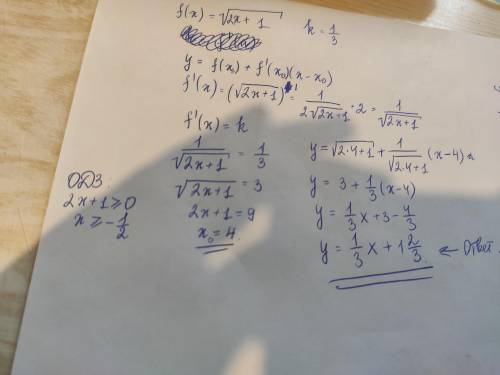 f(x) = √(2x + 1)
k = 1/3
y = f(x₀) + f'(x₀)(x - x₀)
f'(x) = (√(2x+1))' = 1/(2√(2x+1)) · 2 = 1/√(2x+1)
f'(x) = k
1/√(2x+1) = 1/3
√(2x+1) = 3
2x+1 = 9
x₀ = 4
ОДЗ:
2x+1 ≥ 0
x ≥ -1/2
y = √(2·4+1) + 1/√(2·4+1) (x-4)
y = 3 + 1/3 (x-4)
y = 1/3 x + 3 - 4/3
y = 1/3 x + 1 2/3 ← Ответ.